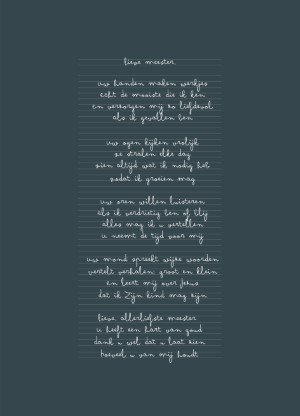 lieve meester,
uw handen maken werkjes
echt de mooiste die ik ken
en verzorgen mij zo liefdevol
als ik gevallen ben
uw ogen kijken vrolijk
ze stralen elke dag
zien altijd wat ik nodig heb
zodat ik groeien mag
uw oren willen luisteren
als ik verdrietig ben of blij
alles mag ik u vertellen
u neemt de tijd voor mij
uw mond spreekt wijze woorden
vertelt verhalen groot en klein
en leert mij over Jezus
dat ik Zijn kind mag zijn
lieve, allerliefste meester
u heeft een hart van goud
dank u wel dat u laat zien
hoeveel u van mij houdt